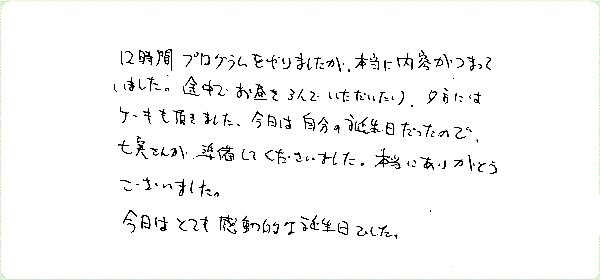 12時間プログラムをやりましたが、本当に内容がつまって
いました。途中でお昼をはさんでいただいたり、夕方には
ケーキも頂きました。今日は自分の誕生日だったので、
七実さんが準備してくださいました。本当にありがとう
ございました。
今日はとても感動的な誕生日でした。